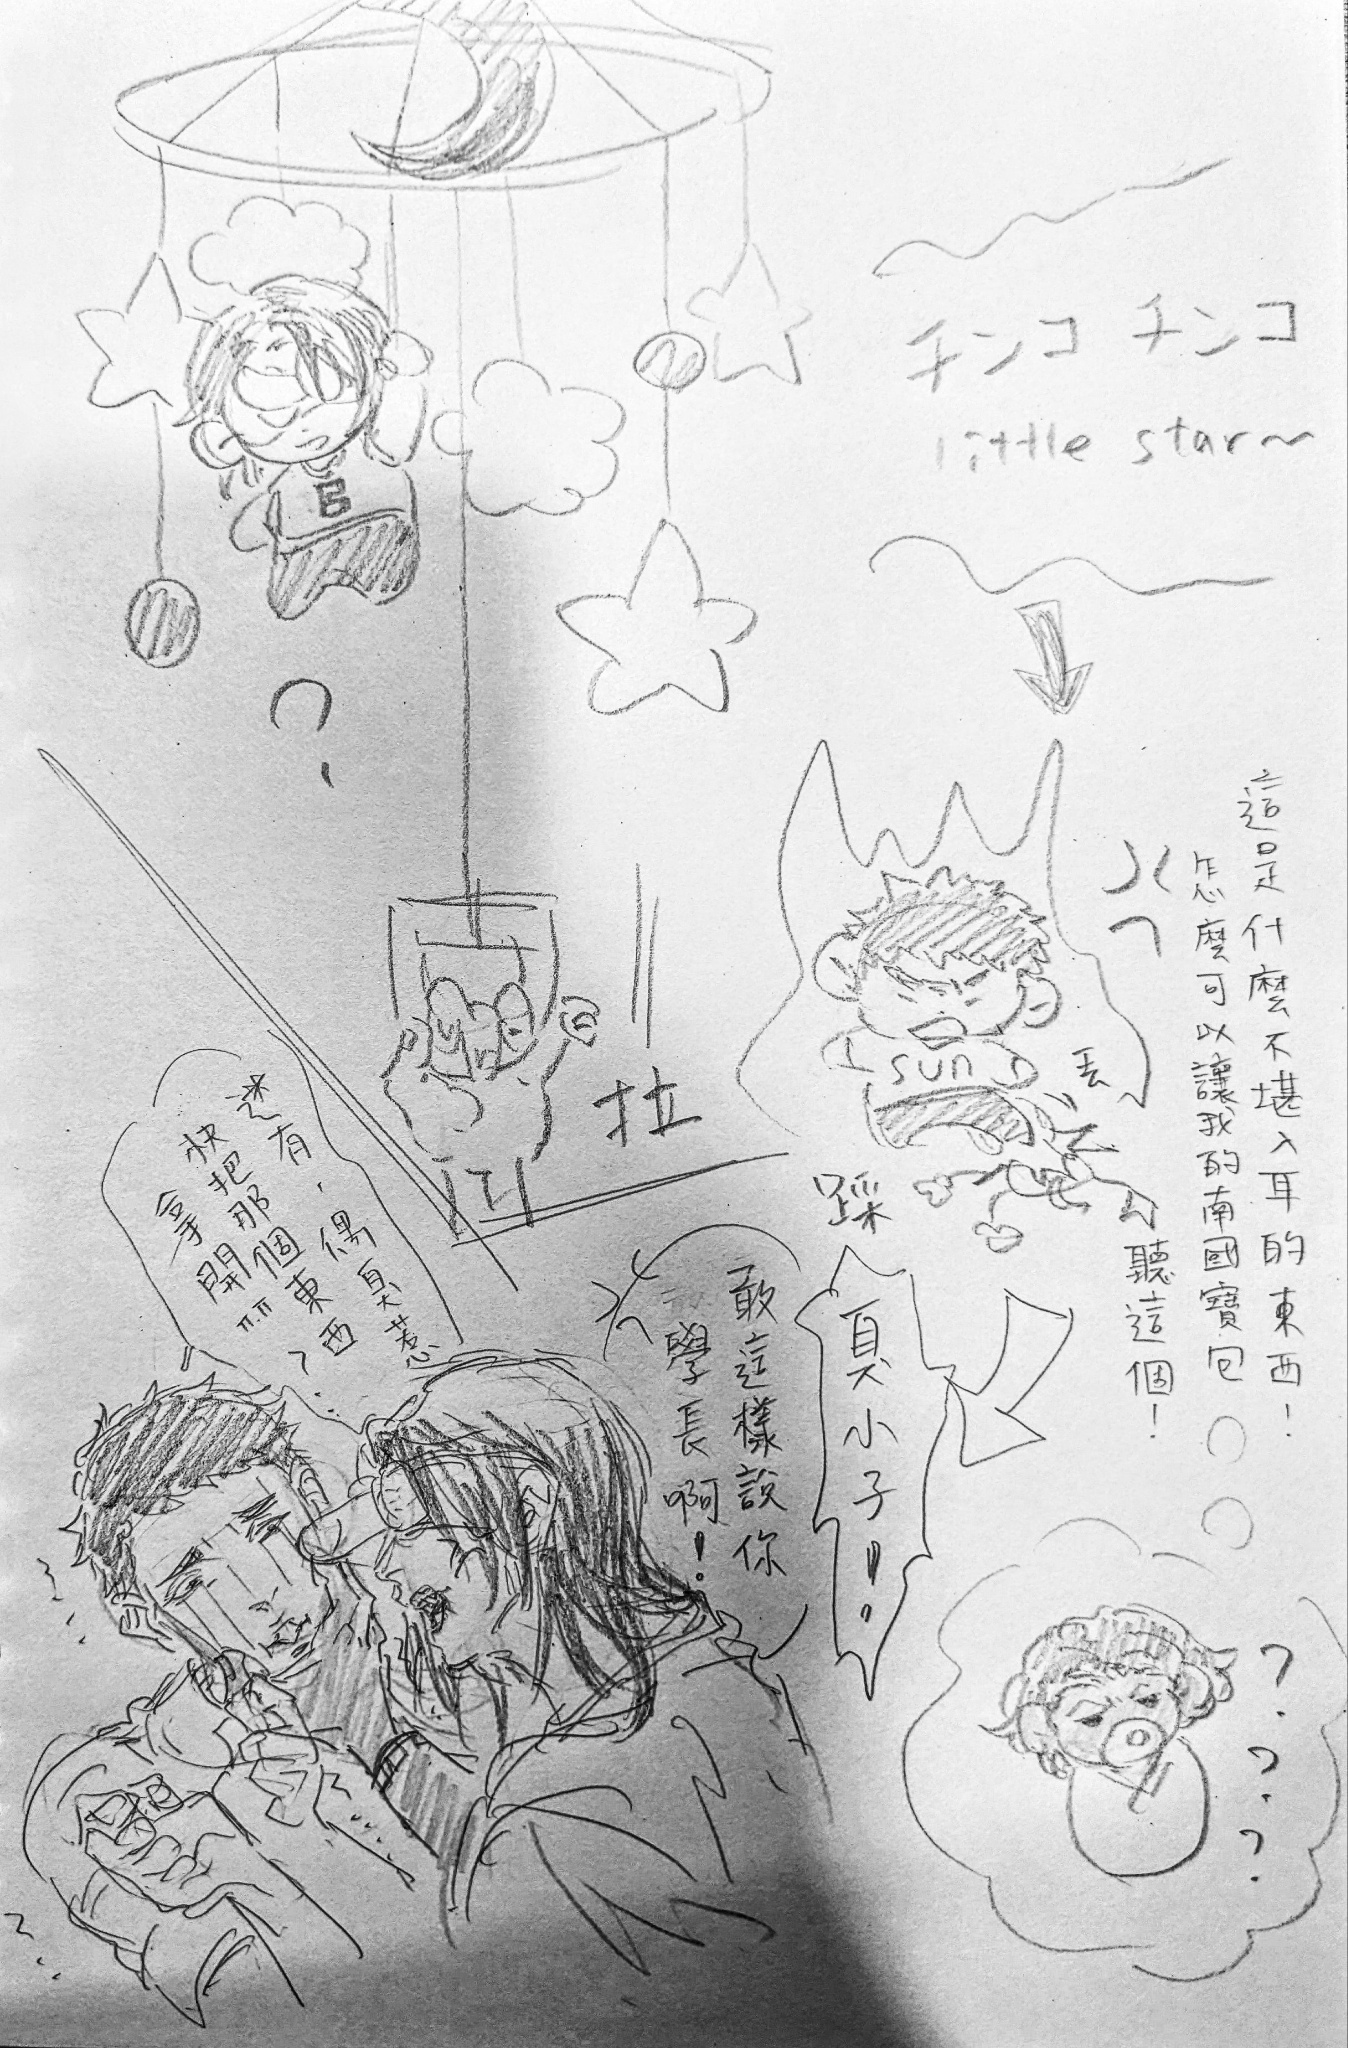 チンコ チンコ
little star~
B
這是什麼不堪入耳的東西!
怎麼可以讓我的南國寶包
聽這個!
sun
丟
踩
拉
臭小子!!
敢這樣說你
學長啊!
還有,偶臭惹
快把那個東西
拿開
? ? ?